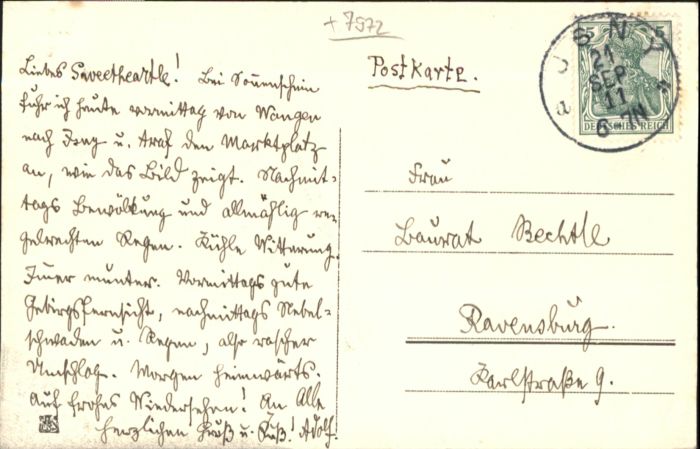 + 7572
Liebes Sweetheartle! Bei Sonnenschein
fuhr ich heute vormittag von Wangen
nach Isny u. traf den Marktplatz
an, wie das Bild zeigt. Nachmit-
tags Bewölkung und allmählig re-
gelrechten Regen. Kühle Witterung.
Imer munter. Vormittags gute
Gebirgsfernsicht, nachmittags Nebel-
schwaden u. Regen, also rascher
Umschlag. Morgen heimwärts.
Auf frohes Wiedersehen! An Alle
herzlichen Gruß u. Kuß! Adolf.
Postkarte.
ISNY
21
SEP
11
6-7N
a
5 5
DEUTSCHES REICH
Frau
Baurat Bechtle
Ravensburg.
Karlstraße 9.